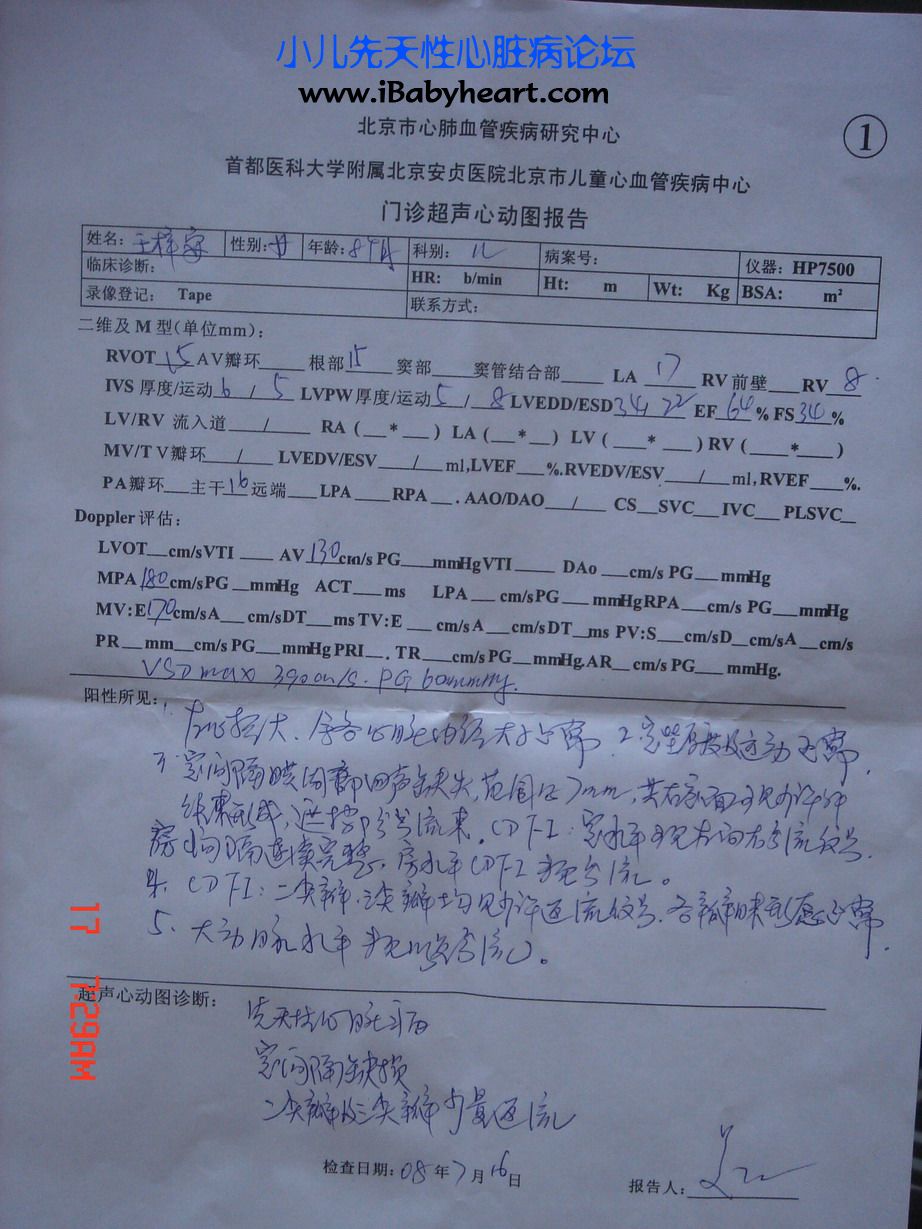 小儿先天性心脏病论坛
www.iBabyheart.com
北京市心肺血管疾病研究中心
①
首都医科大学附属北京安贞医院北京市儿童心血管疾病中心
门诊超声心动图报告
姓名: 性别: 年龄: 科别: 儿 病案号: 仪器: HP7500
临床诊断: HR: b/min Ht: m Wt: Kg BSA: m²
录像登记: Tape 联系方式:
二维及 M 型(单位mm):
RVOT 15 AV 瓣环____ 根部 15 窦部____ 窦管结合部____ LA 17 RV 前壁___ RV 8
IVS 厚度/运动 6 / 5 LVPW 厚度/运动 5 / 8 LVEDD/ESD 34 22 EF 64 % FS 34 %
LV/RV 流入道___/___ RA (__*__) LA (__*__) LV (__*__) RV (__*__)
MV/TV瓣环___/___ LVEDV/ESV___/___ml,LVEF___%.RVEDV/ESV___/___ml,RVEF___%.
PA瓣环___主干 16 远端___LPA___RPA__. AAO/DAO__/__ CS__SVC__IVC__PLSVC__
Doppler 评估:
LVOT__cm/sVTI___ AV 130 cm/s PG___mmHgVTI____ DAo___cm/s PG___mmHg
MPA 180 cm/sPG__mmHg ACT___ms LPA___cm/sPG___mmHgRPA___cm/s PG___mmHg
MV:E 170 cm/sA___cm/sDT___ms TV:E___cm/sA___cm/sDT__ms PV:S___cm/sD__cm/sA__cm/s
PR__mm__cm/s PG___mmHg PRI__. TR___cm/s PG__mmHg.AR__cm/s PG___mmHg.
VSD max 390cm/s. PG 60mmHg.
阳性所见: 1. 左心扩大, 余各心腔内径大小正常 2. 室壁厚度及运动正常.
3. 室间隔膜周部回声缺失, 范围约7mm, 其右室面可见少许
结果形成, 遮挡部分分流束. CDFI: 室水平可见左向右分流信号.
房间隔连续完整, 房水平CDFI未见分流。
4. CDFI: 二尖瓣、三尖瓣均见少许返流信号, 各瓣膜形态正常.
5. 大动脉水平未见异常分流。
超声心动图诊断:
先天性心脏病
室间隔缺损
二尖瓣及三尖瓣少量返流
检查日期: 08 年 7 月 16 日
报告人:
17 7:29AM